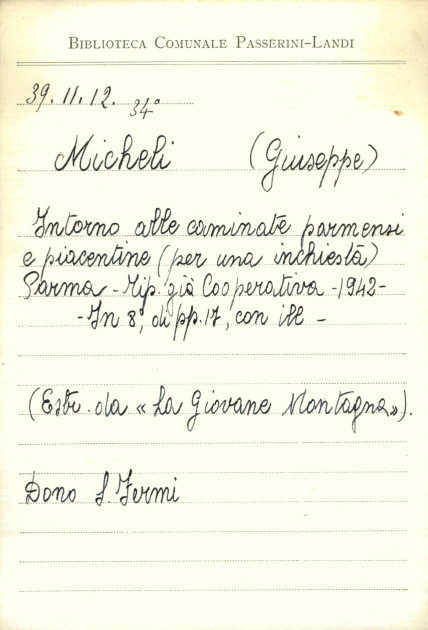 BIBLIOTECA COMUNALE PASSERINI-LANDI
39.11.12. 34°
Micheli (Giuseppe)
Intorno alle caminate parmensi
e piacentine (per una inchiesta)
Parma - Tip. già Cooperativa - 1942 -
- In 8°, di pp. 17, con ill -
(Estr. da « La Giovane Montagna »).
Dono S. Fermi